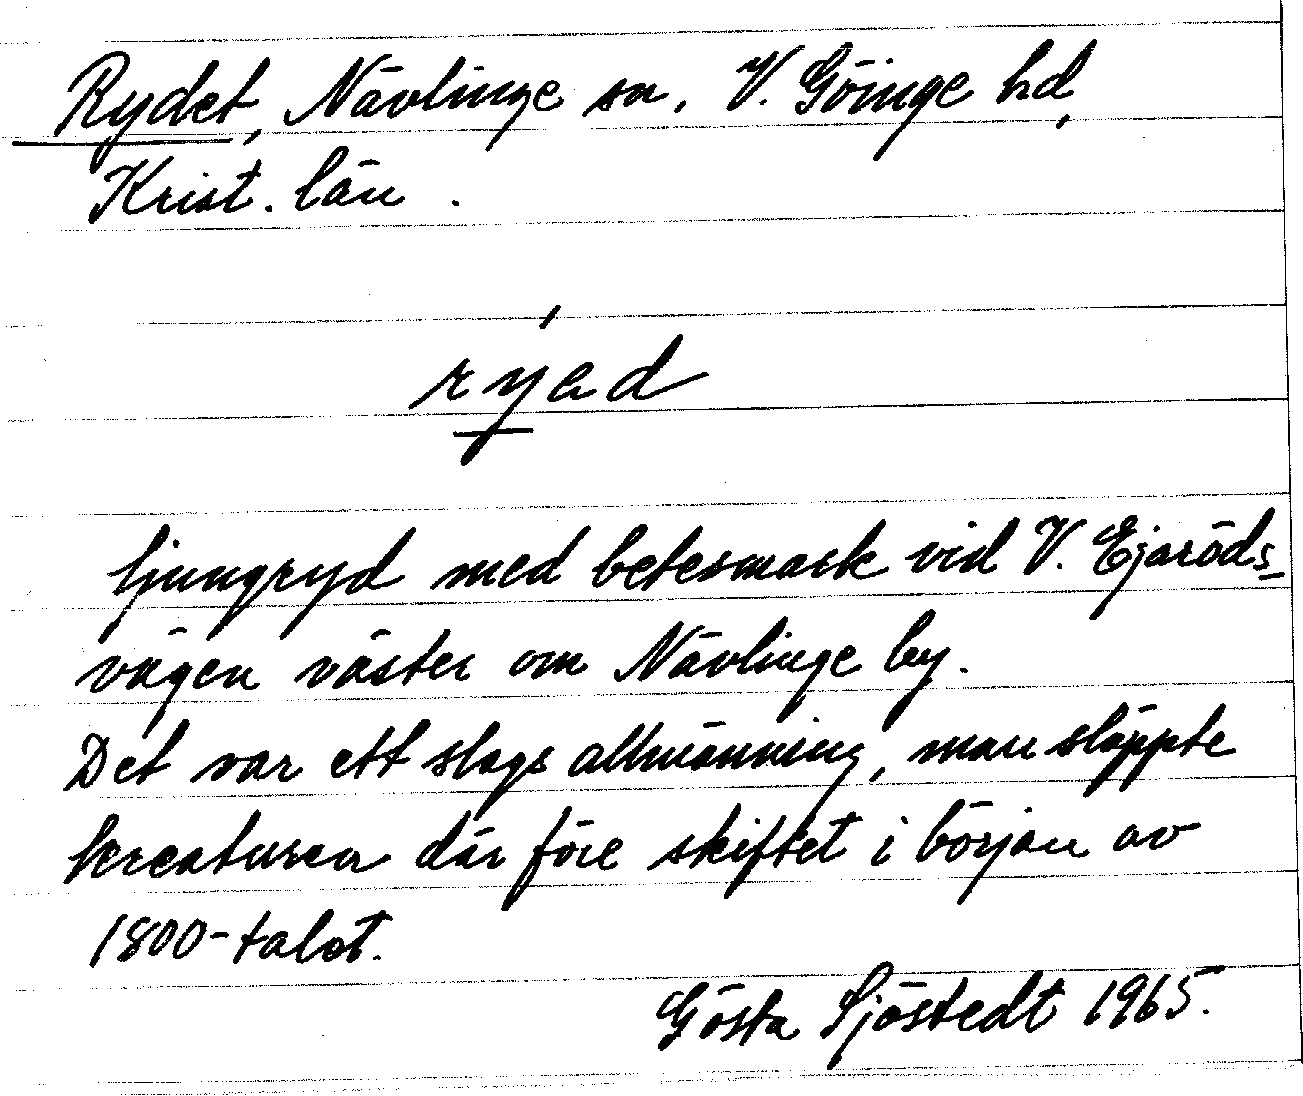 Rydet, Nävlinge sn. V. Göinge hd,
Krist. län.
rýed
ljungryd med betesmark vid V. Ejaröds-
vägen väster om Nävlinge by.
Det var ett slags allmänning, man släppte
kreaturen där före skiftet i början av
1800-talet.
Gösta Sjöstedt 1965.